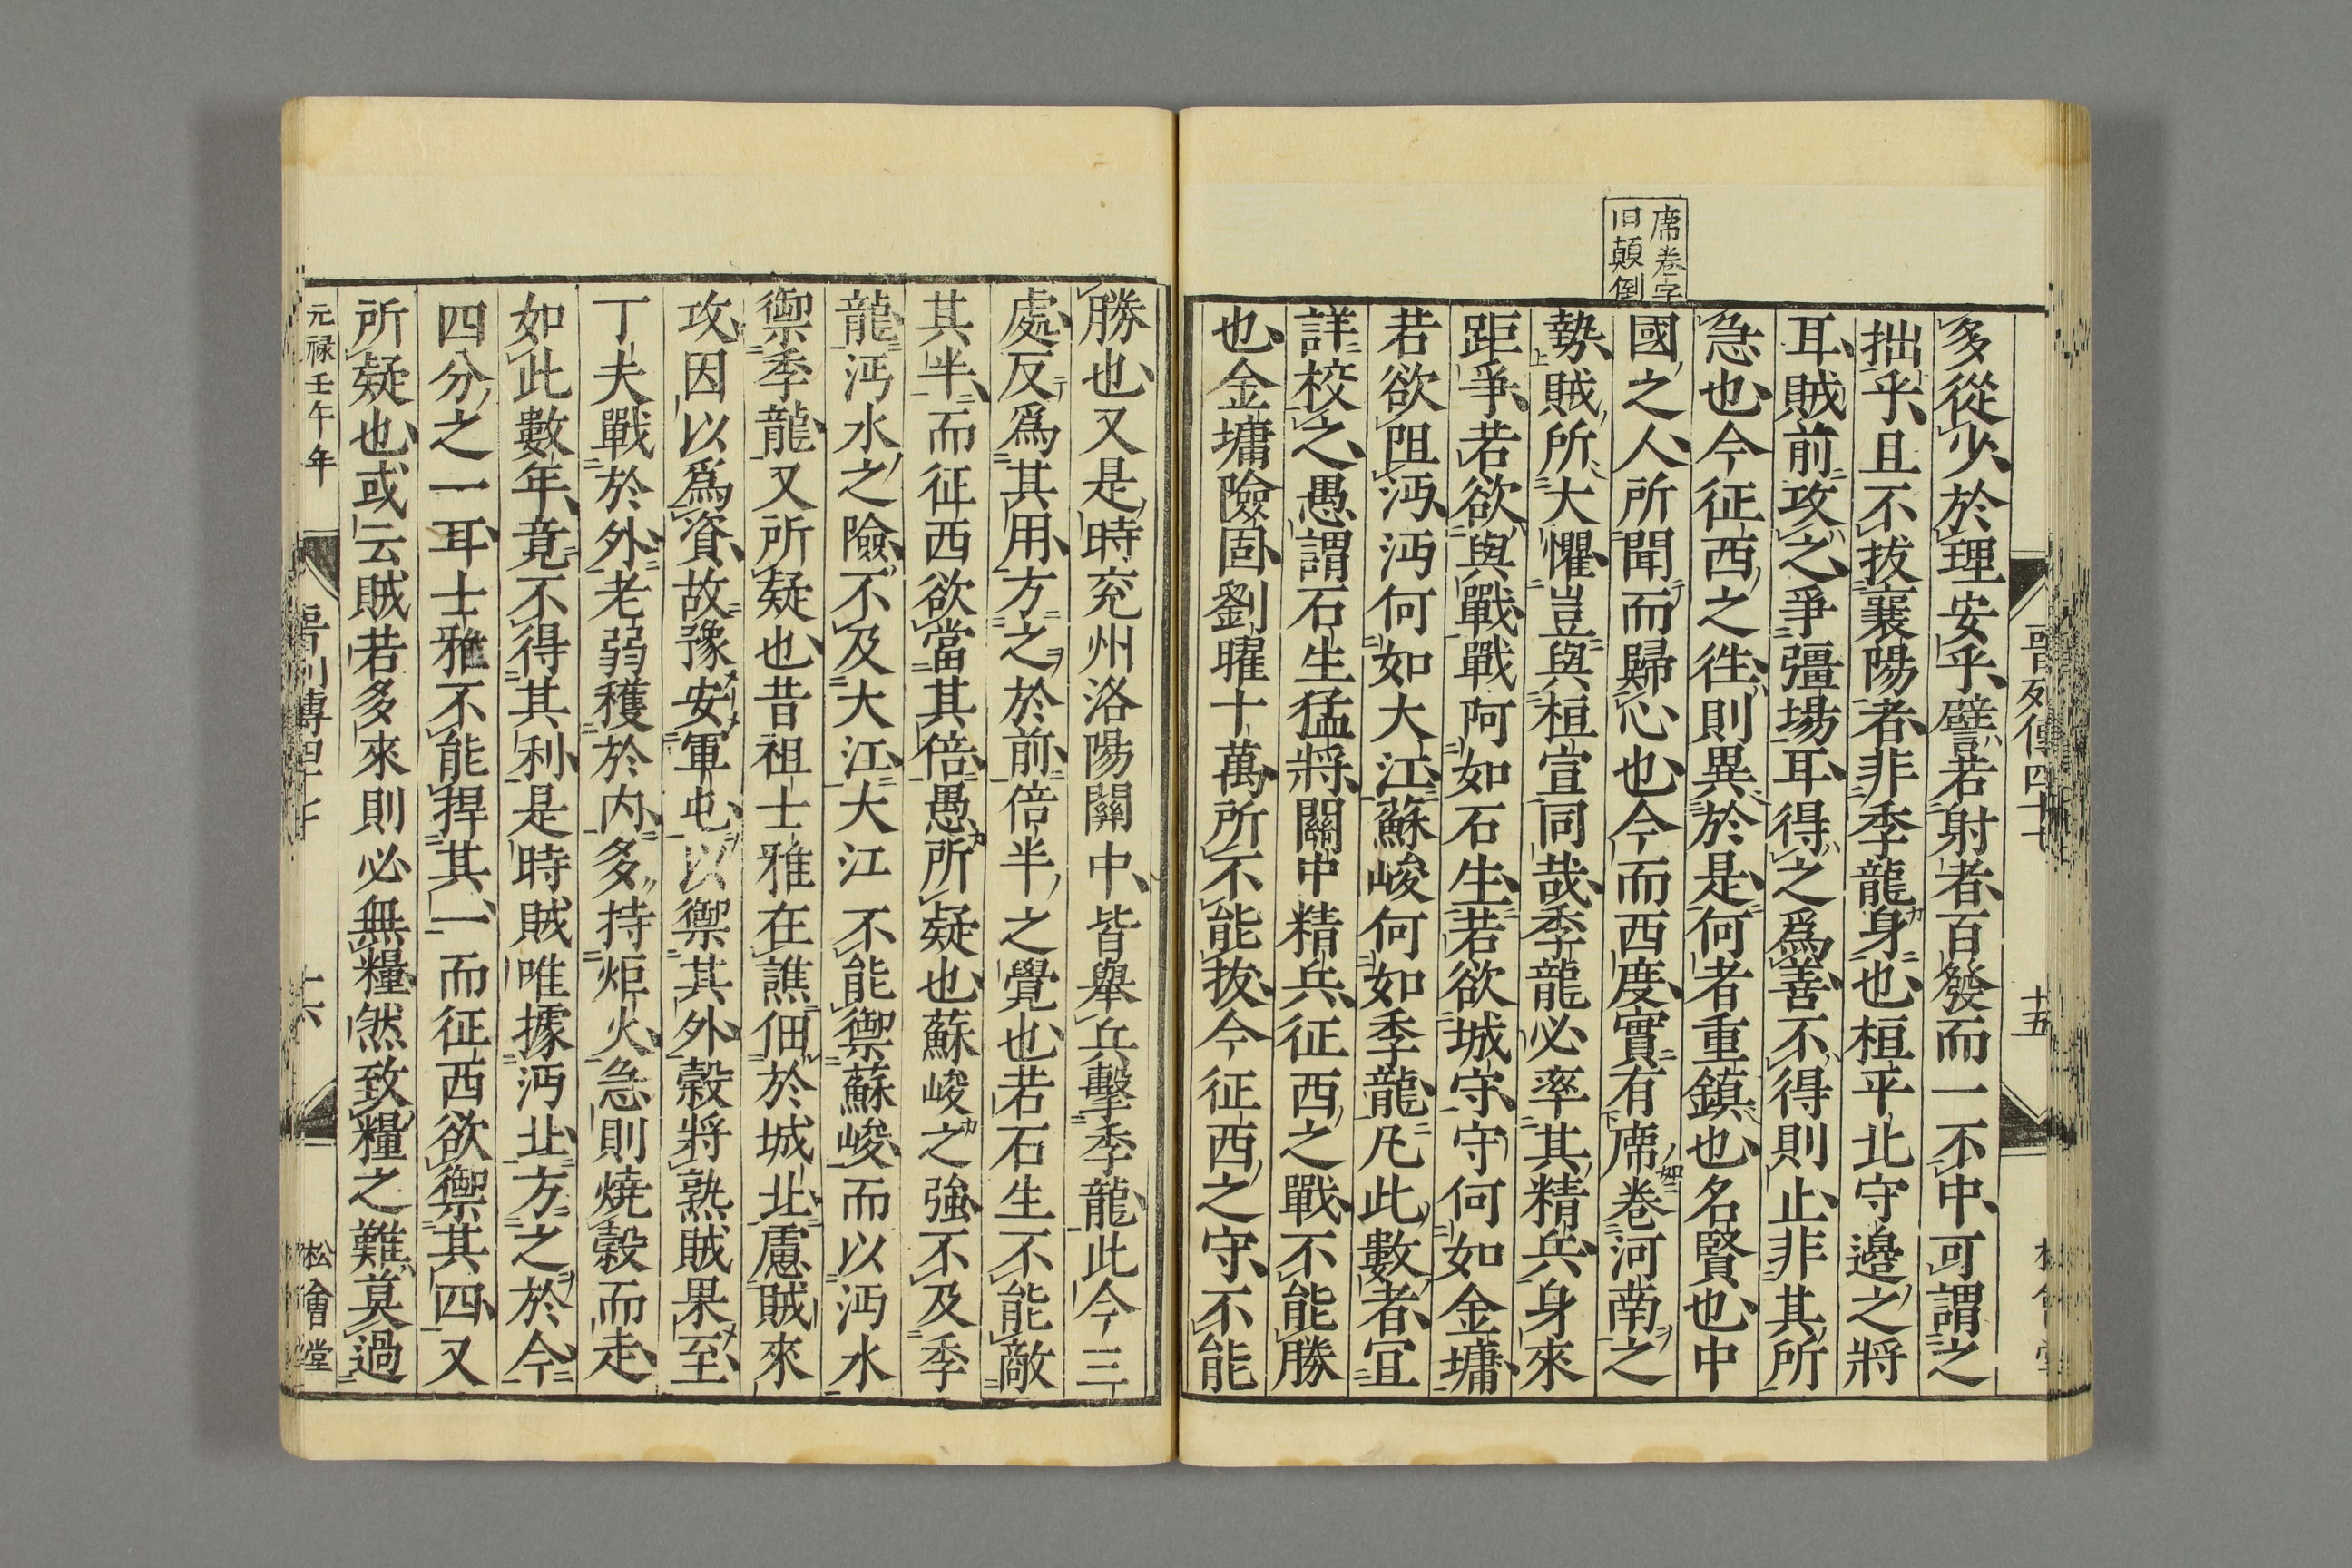 席卷字
旧顛倒
晉列傳四十七
十五
多從少於理安乎譬若射者百發而一不中可謂之
拙乎且不拔襄陽者非季龍身也桓平北守邊之將
耳賊前攻之爭彊場耳得之爲善不得則止非其所
急也今征西之徃則異於是何者重鎮也名賢也中
國之人所聞而歸心也今而西度實有席卷河南之
勢賊所大懼豈與桓宣同哉季龍必率其精兵身來
距爭若欲與戰戰何如石生若欲城守守何如金墉
若欲阻沔沔何如大江蘇峻何如季龍凡此數者宜
詳校之愚謂石生猛將關中精兵征西之戰不能勝
也金墉險固劉曜十萬所不能拔今征西之守不能
勝也又是時兗州洛陽關中皆舉兵擊季龍此今三
處反爲其用方之於前倍半之覺也若石生不能敵
其半而征西欲當其倍愚所疑也蘇峻之強不及季
龍沔水之險不及大江大江不能禦蘇峻而以沔水
禦季龍又所疑也昔祖士雅在譙佃於城北慮賊來
攻因以爲資故豫安軍屯以禦其外穀將熟賊果至
丁夫戰於外老弱穫於内多持炬火急則燒穀而走
如此數年竟不得其利是時賊唯據沔北方之於今
四分之一耳士雅不能捍其一而征西欲禦其四又
所疑也或云賊若多來則必無糧然致糧之難莫過
元禄壬午年
晉列傳四十七
十六
松會堂